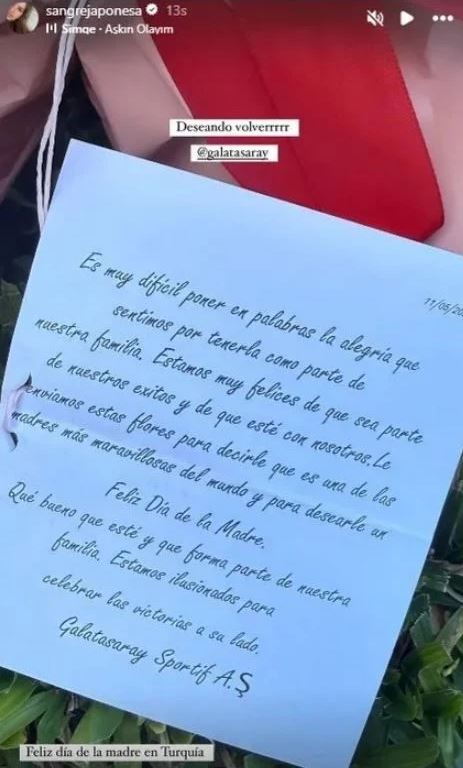 sangrejaponesa 13s
Simge • Aşkın Olayım
Deseando volverrrrr
@galatasaray
11/05/20
Es muy difícil poner en palabras la alegría que
sentimos por tenerla como parte de
nuestra familia. Estamos muy felices de que sea parte
de nuestros exitos y de que esté con nosotros.Le
enviamos estas flores para decirle que es una de las
madres más maravillosas del mundo y para desearle un
Feliz Día de la Madre.
Qué bueno que esté y que forma parte de nuestra
familia. Estamos ilusionados para
celebrar las victorias a su lado.
Galatasaray Sportif A.Ş
Feliz día de la madre en Turquía